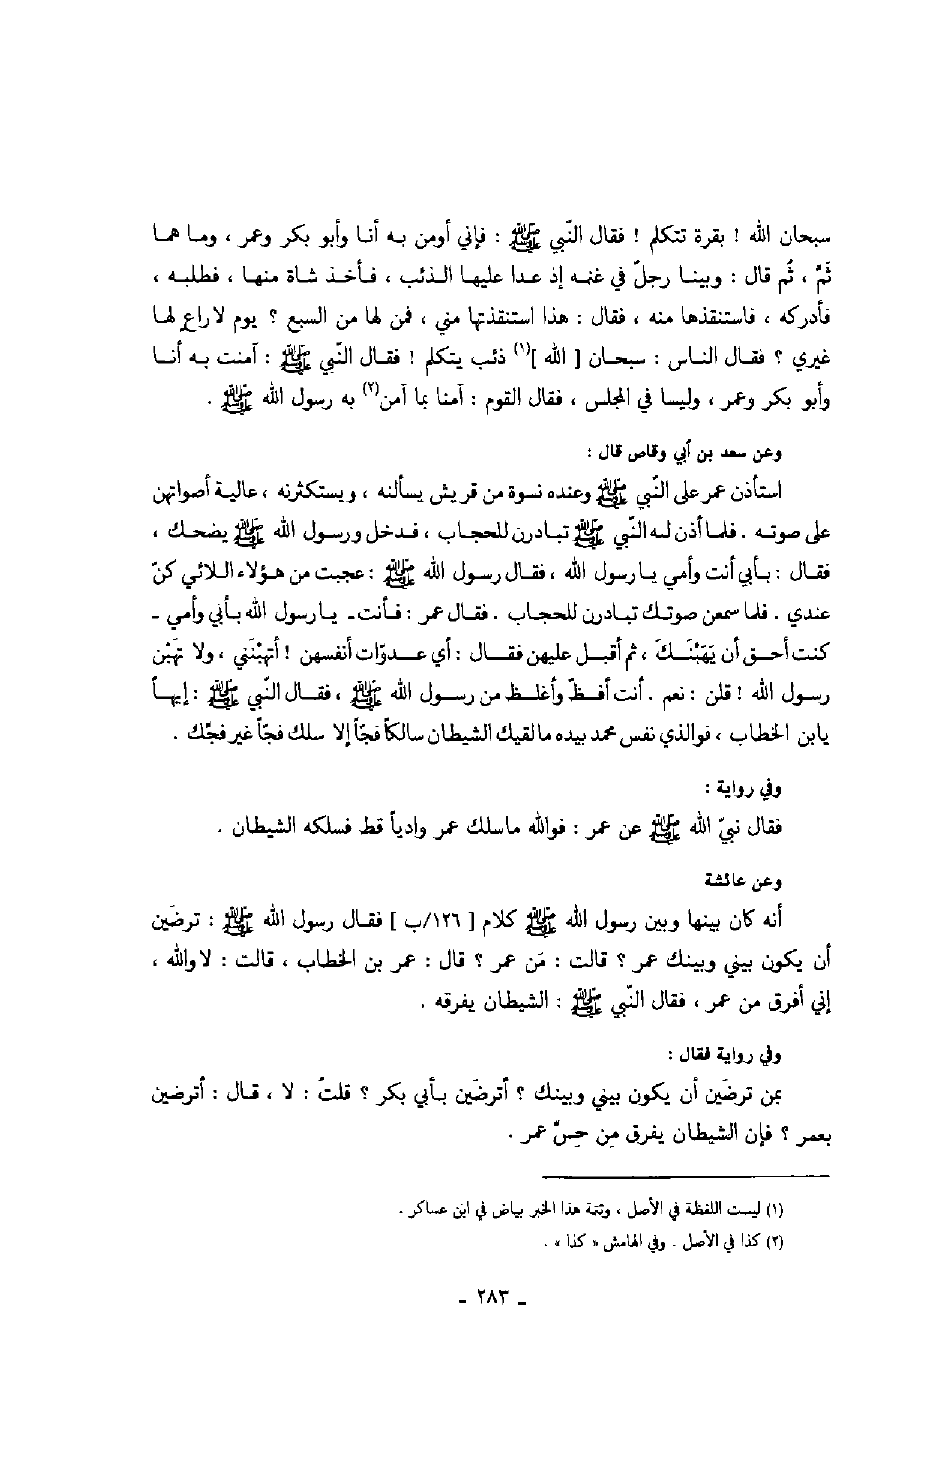 سبحان الله ! بقرة تتكلم ! فقال النّبي ﷺ : فإني أومن بـه أنـا وأبو بكر وعمر ، ومـا هما
ثَمَّ ، ثُم قال : وبينـا رجلٌ في غنمه إذ عـدا عليهـا الـذئب ، فـأخـذ شـاة منهـا ، فطلبـه ،
فأدركه ، فاستنقذها منه ، فقال : هذا استنقذتها مني ، فمن لها من السبع ؟ يوم لا راعٍ لها
غيري ؟ فقـال النـاس : سبحـان [ الله ](١) ذئب يتكلم ! فقـال النّبي ﷺ : آمنت بـه أنـا
وأبو بكر وعمر ، وليسا في المجلس ، فقال القوم : آمنا بما آمن(٢) به رسول الله ﷺ .
وعن سعد بن أبي وقاص قال :
استأذن عمر على النّبي ﷺ وعنده نسوة من قريش يسألنه ، ويستكثرنه ، عاليـة أصواتهن
على صوتـه . فلمـا أذن لـه النّبي ﷺ تبـادرن للحجـاب ، فـدخل ورسـول الله ﷺ يضحـك ،
فقـال : بـأبي أنت وأمي يـا رسول الله ، فقـال رسول الله ﷺ : عجبت من هـؤلاء اللائي كنّ
عندي . فلما سمعن صوتـك تبـادرن للحجاب . فقـال عمر : فـأنت ـ يـا رسول الله بـأبي وأمي ـ
كنت أحـق أن يَهَبْنَـكَ ، ثم أقبـل عليهن فقـال : أي عـدوّات أنفسهن ! أتهبْنَني ، ولا تهَبْن
رسول الله ! قلن : نعم . أنت أفـظّ وأغلـظ من رسـول الله ﷺ ، فقـال النّبي ﷺ : إيهـاً
يابن الخطاب ، فوالذي نفس محمد بيده ما لقيك الشيطان سالكاً فجّاً إلا سلك فجّاً غير فجّك .
وفي رواية :
فقال نبيّ الله ﷺ عن عمر : فوالله ما سلك عمر وادياً قط فسلكه الشيطان .
وعن عائشة
أنه كان بينها وبين رسول الله ﷺ كلام [ ١٢٦/ب ] فقـال رسول الله ﷺ : ترضَين
أن يكون بيني وبينك عمر ؟ قالت : مَن عمر ؟ قال : عمر بن الخطاب ، قالت : لا والله ،
إني أفرق من عمر ، فقال النّبي ﷺ : الشيطان يفرقه .
وفي رواية فقال :
بمن ترضَين أن يكون بيني وبينك ؟ أترضَين بـأبي بكر ؟ قلتُ : لا ، قـال : أترضين
بعمر ؟ فإن الشيطان يفرق مِن حِسِّ عمر .
(١) ليست اللفظة في الأصل ، وتتمة هذا الخبر بياض في ابن عساكر .
(٢) كذا في الأصل . وفي الهامش « كذا » .
ـ ٢٨٣ ـ